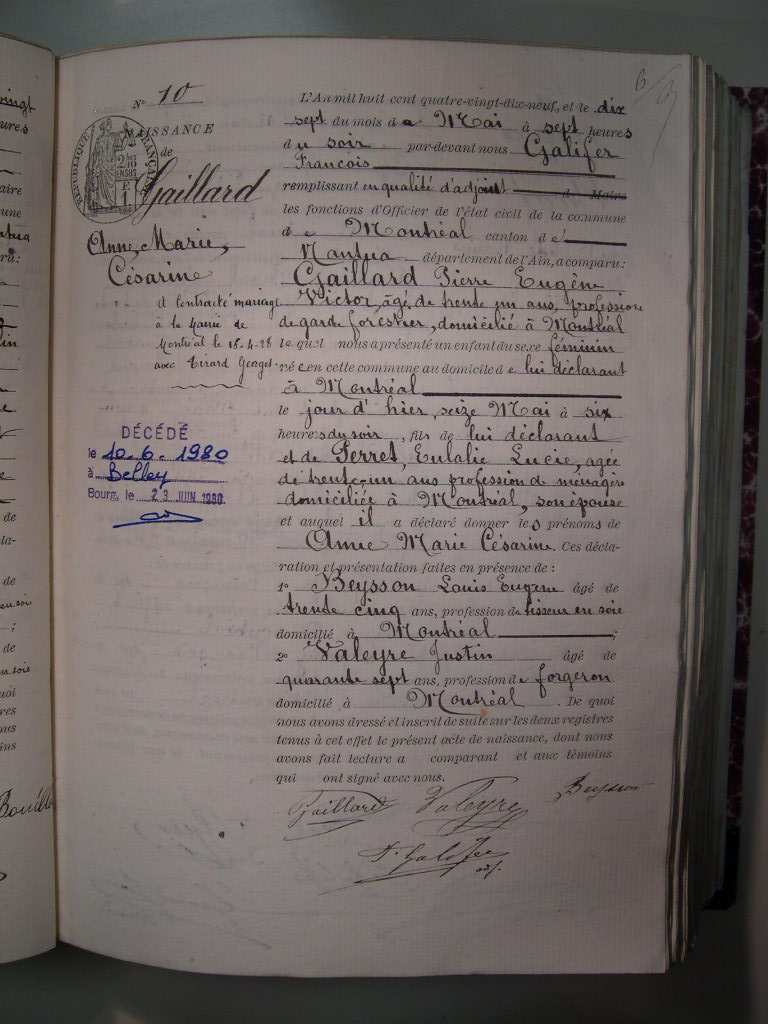 Nº 10
NAISSANCE
de
Gaillard
Anne, Marie,
Césarine
RÉPUBLIQUE FRANÇAISE
a contracté mariage
à la mairie de
Montréal le 18-4-28
avec Girard Georges
DÉCÉDÉ
le 10.6.1980
à Belley
Bourg, le 23 JUIN 1980
L'An mil huit cent quatre-vingt-dix-neuf, et le dix
sept du mois de Mai à sept heures
du soir par-devant nous Galifer
François
remplissant en qualité d'adjoint de Maire
les fonctions d'Officier de l'état civil de la commune
de Montréal canton de
Nantua département de l'Ain, a comparu:
Gaillard Pierre Eugène
Victor, âgé de trente un ans, profession
de garde forestier, domicilié à Montréal
lequel nous a présenté un enfant du sexe féminin
née en cette commune au domicile de lui déclarant
à Montréal
le jour d'hier, seize Mai à six
heures du soir, fils de lui déclarant
et de Perret, Eulalie Lucie, agée
de trente-un ans profession de ménagère
domiciliée à Montréal, son épouse
et auquel il a déclaré donner les prénoms de
Anne Marie Césarine. Ces décla-
ration et présentation faites en présence de :
1º Beysson Louis Eugène âgé de
trente cinq ans, profession de tisseur en soie
domicilié à Montréal ;
2º Valeyre Justin âgé de
quarante sept ans, profession de forgeron
domicilié à Montréal. De quoi
nous avons dressé et inscrit de suite sur les deux registres
tenus à cet effet le présent acte de naissance, dont nous
avons fait lecture a comparant et aux témoins
qui ont signé avec nous.
Gaillard Valeyre Beysson
F. Galifer
adj.